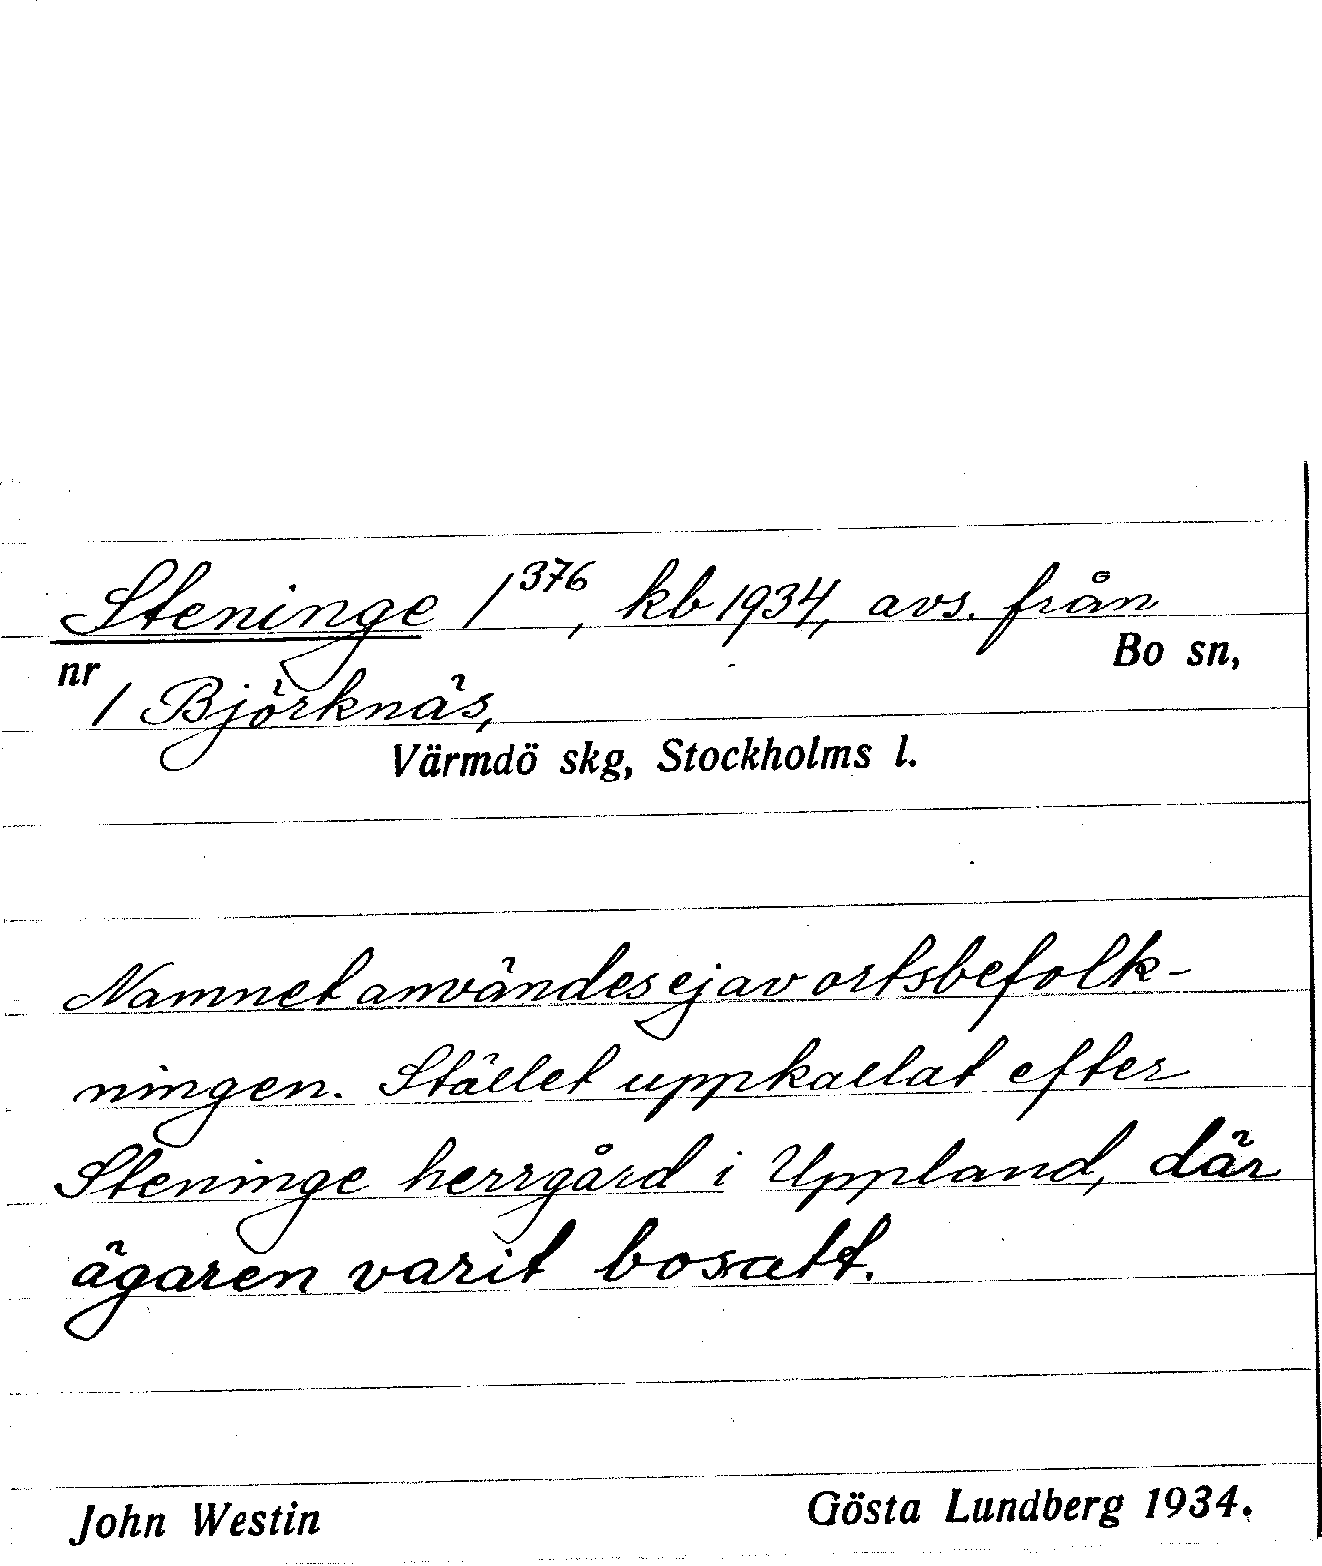 Steninge 1³⁷⁶, kb 1934, avs. från
Bo sn,
nr
1 Björknäs,
Värmdö skg, Stockholms l.
Namnet användes ej av ortsbefolk-
ningen. Stället uppkallat efter
Steninge herrgård i Uppland, där
ägaren varit bosatt.
John Westin
Gösta Lundberg 1934.